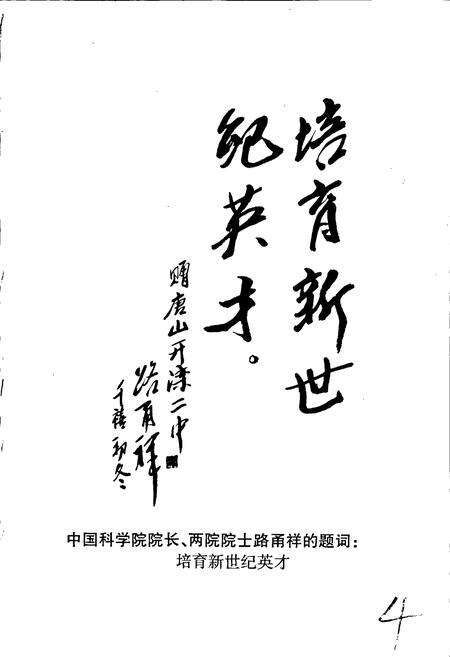 培育新世
纪英才。
赠唐山开滦二中
路甬祥
千禧初冬
中国科学院院长、两院院士路甬祥的题词：
培育新世纪英才
4